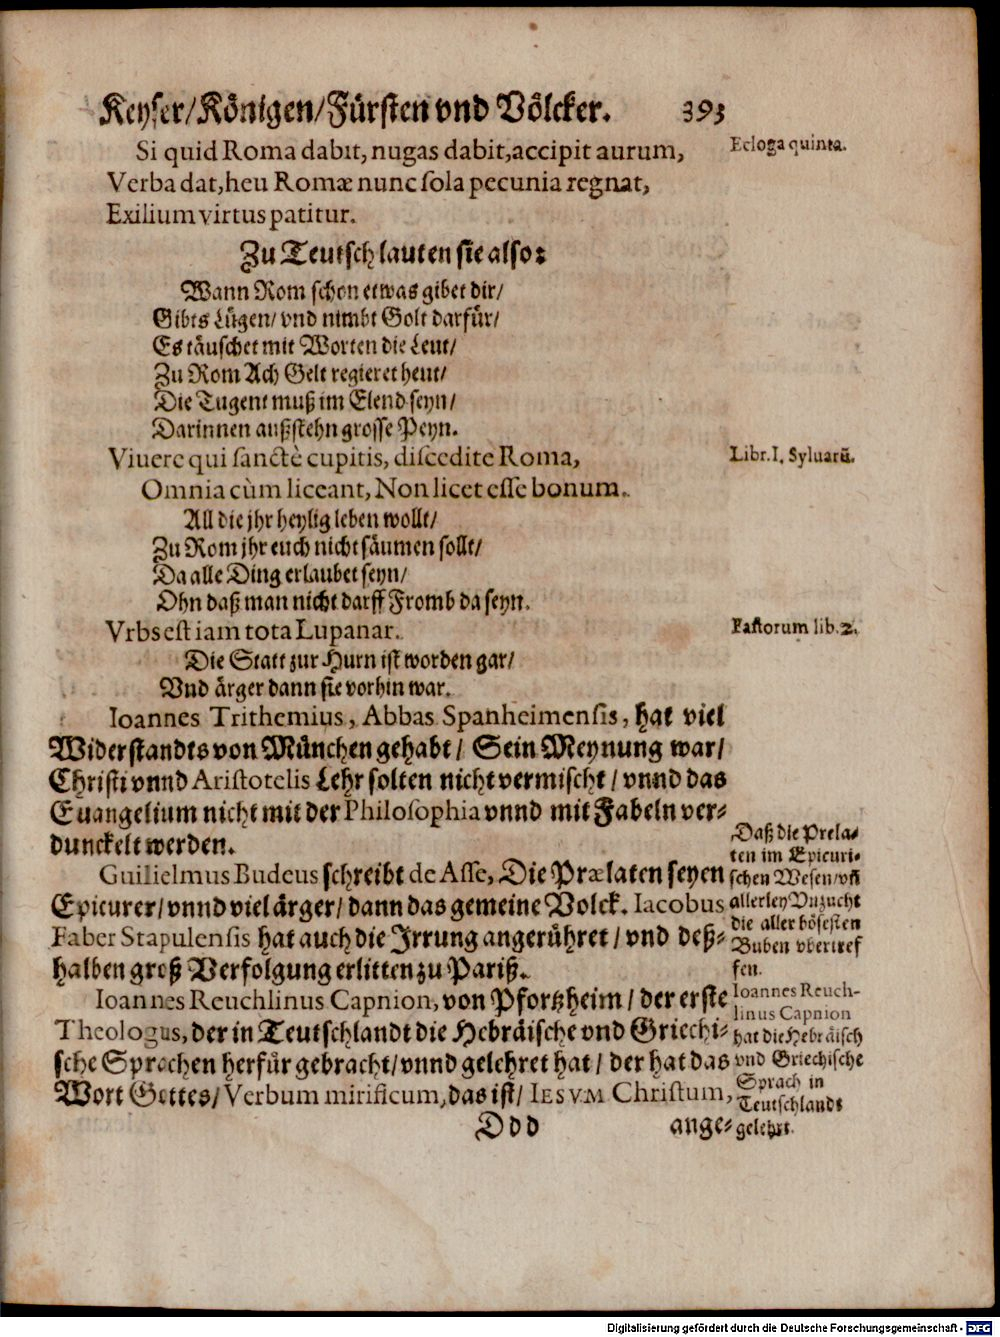 Keyser/Königen/Fürsten vnd Völcker. 393
Si quid Roma dabit, nugas dabit,accipit aurum,
Ecloga quinta.
Verba dat,heu Romæ nunc sola pecunia regnat,
Exilium virtus patitur.
Zu Teutsch lauten sie also:
Wann Rom schon etwas gibet dir/
Gibts Lügen/ vnd nimbt Golt darfür/
Es täuschet mit Worten die Leut/
Zu Rom Ach Gelt regieret heut/
Die Tugent muß im Elend seyn/
Darinnen außstehn grosse Peyn.
Viuere qui sanctè cupitis, discedite Roma,
Libr. I. Syluarũ.
Omnia cùm liceant, Non licet esse bonum.
All die jhr heylig leben wollt/
Zu Rom jhr euch nicht säumen sollt/
Da alle Ding erlaubet seyn/
Ohn daß man nicht darff Fromb da seyn.
Vrbs est iam tota Lupanar.
Fastorum lib. 2.
Die Statt zur Hurn ist worden gar/
Vnd ärger dann sie vorhin war.
Ioannes Trithemius, Abbas Spanheimensis, hat viel
Widerstandts von München gehabt/ Sein Meynung war/
Christi vnnd Aristotelis Lehr solten nicht vermischt/ vnnd das
Euangelium nicht mit der Philosophia vnnd mit Fabeln ver-
dunckelt werden.
Guilielmus Budeus schreibt de Asse, Die Prælaten seyen
Epicurer/ vnnd viel ärger/ dann das gemeine Volck. Iacobus
Faber Stapulensis hat auch die Irrung angerühret/ vnd deß-
halben groß Verfolgung erlitten zu Pariß.
Daß die Prela-
ten im Epicuri-
schen Wesen/ vñ
allerley Vnzucht
die aller bösesten
Buben vbertref
fen.
Ioannes Reuchlinus Capnion, von Pfortzheim/ der erste
Theologus, der in Teutschlandt die Hebräische vnd Griechi-
sche Sprachen herfür gebracht/ vnnd gelehret hat/ der hat das
Wort Gottes/ Verbum mirificum, das ist/ IESVM Christum,
Ioannes Reuch-
linus Capnion
hat die Hebräisch
vnd Griechische
Sprach in
Teutschlandt
gelehrt.
Ddd ange-
Digitalisierung gefördert durch die Deutsche Forschungsgemeinschaft - DFG